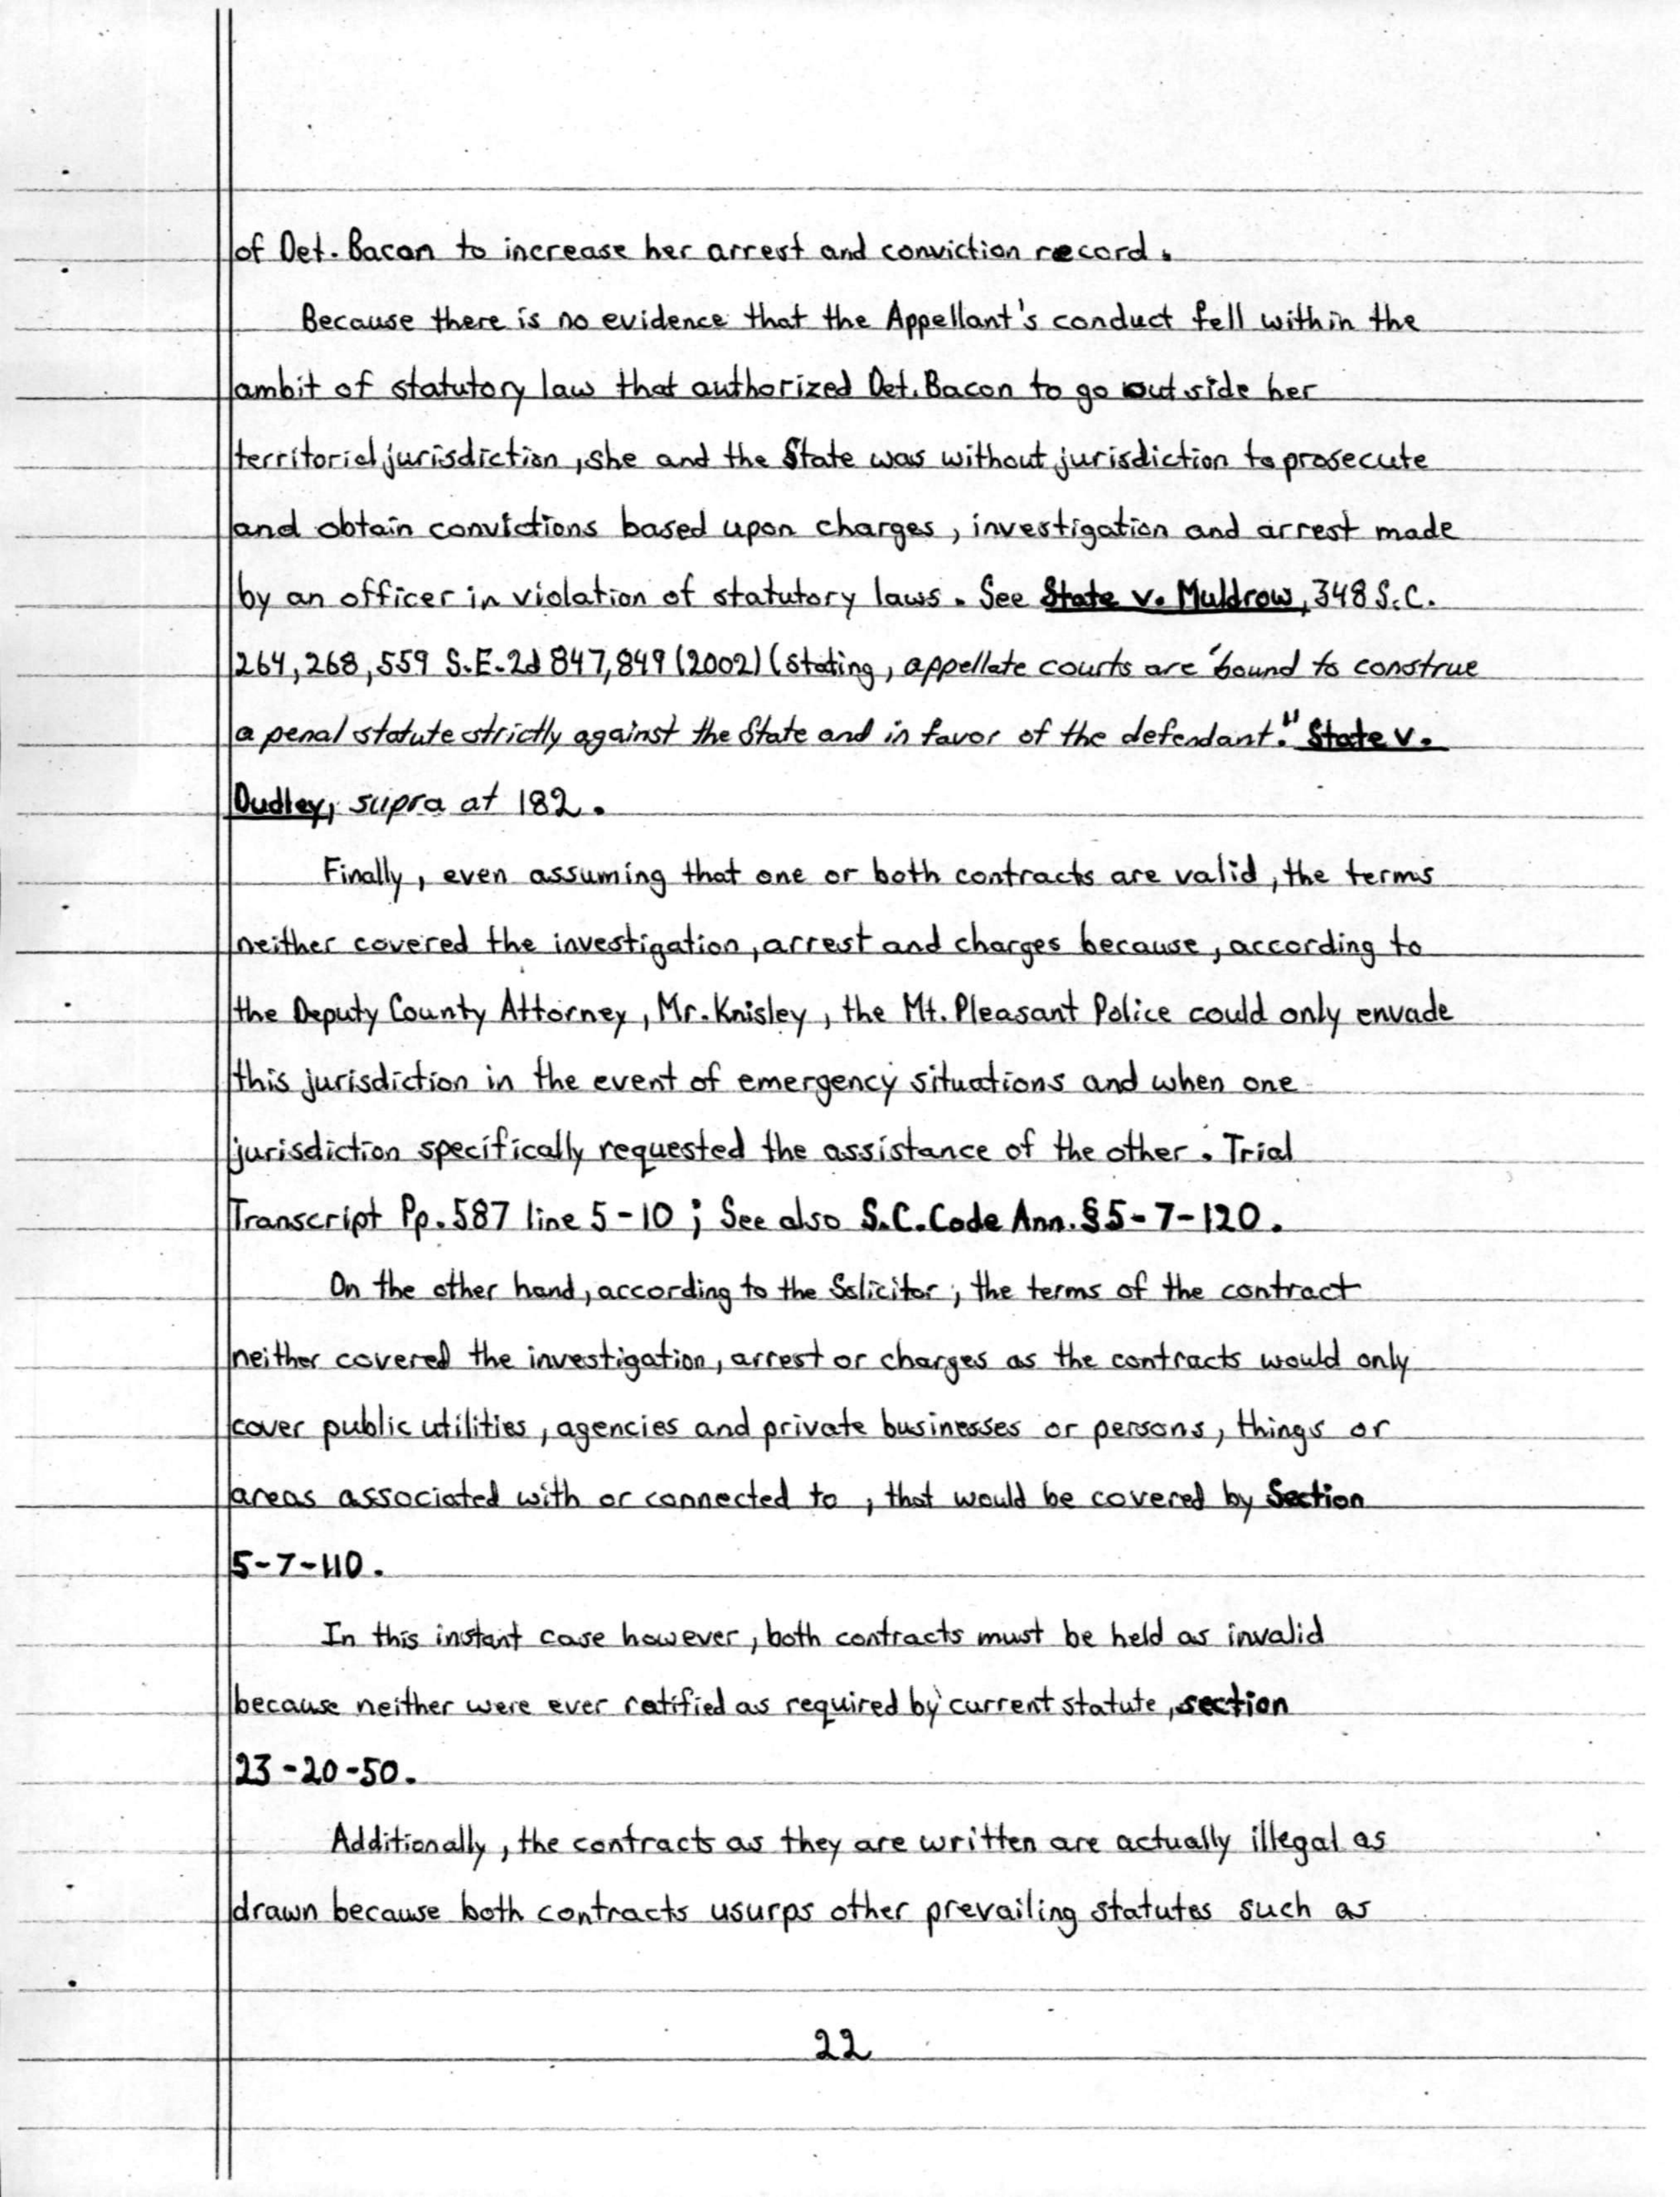 of Det. Bacon to increase her arrest and conviction record.
Because there is no evidence that the Appellant's conduct fell within the
ambit of statutory law that authorized Det. Bacon to go outside her
territorial jurisdiction, she and the State was without jurisdiction to prosecute
and obtain convictions based upon charges, investigation and arrest made
by an officer in violation of statutory laws. See State v. Muldrow, 348 S.C.
264, 268, 559 S.E.2d 847, 849 (2002) (stating, appellate courts are "bound to construe
a penal statute strictly against the State and in favor of the defendant." State v.
Dudley, supra at 182.
Finally, even assuming that one or both contracts are valid, the terms
neither covered the investigation, arrest and charges because, according to
the Deputy County Attorney, Mr. Knisley, the Mt. Pleasant Police could only envade
this jurisdiction in the event of emergency situations and when one
jurisdiction specifically requested the assistance of the other. Trial
Transcript Pp. 587 line 5-10; See also S.C. Code Ann. § 5-7-120.
On the other hand, according to the Solicitor, the terms of the contract
neither covered the investigation, arrest or charges as the contracts would only
cover public utilities, agencies and private businesses or persons, things or
areas associated with or connected to, that would be covered by Section
5-7-110.
In this instant case however, both contracts must be held as invalid
because neither were ever ratified as required by current statute, section
23-20-50.
Additionally, the contracts as they are written are actually illegal as
drawn because both contracts usurps other prevailing statutes such as
22